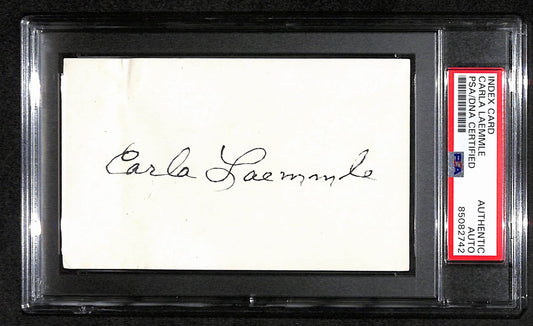 Carla Laemmle
INDEX CARD
CARLA LAEMMLE
PSA/DNA CERTIFIED
PSA
AUTHENTIC
AUTO
85082742